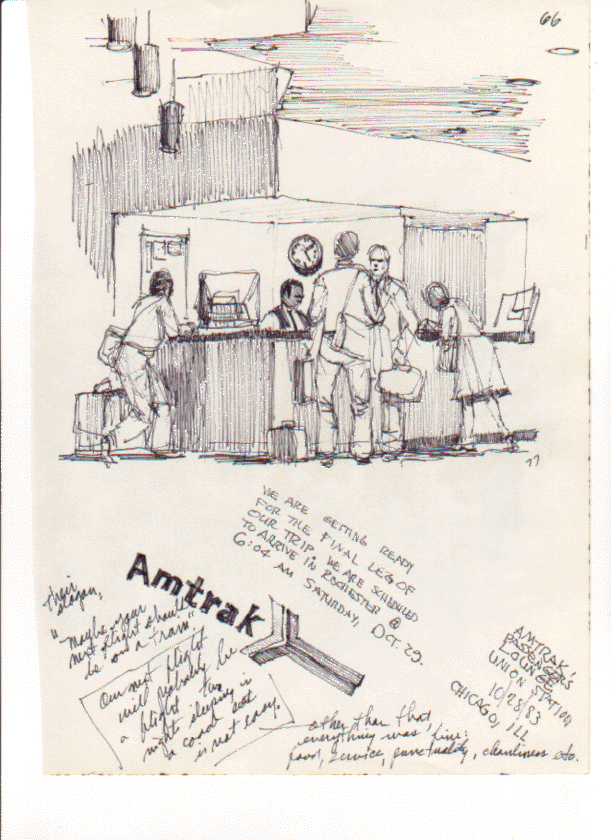 66
WE ARE GETTING READY
FOR THE FINAL LEG OF
OUR TRIP. WE ARE SCHEDULED
TO ARRIVE IN ROCHESTER @
6:04 AM SATURDAY, OCT. 29.
Amtrak
Their
slogan,
"Maybe your
next flight should
be on a train."
Our next flight
will probably be
a flight. Two
nights sleeping in
a coach seat
is not easy.
other than that,
everything was fine:
food, service, punctuality, cleanliness etc.
AMTRAK'S
PASSENGER'S
LOUNGE
UNION STATION
10/28/83
CHICAGO, ILL